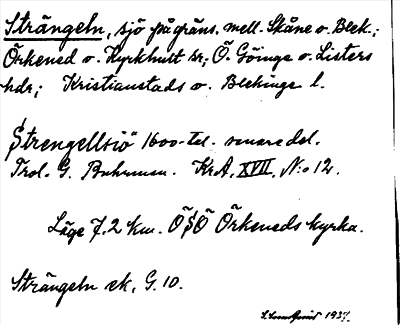 Strängeln, sjö på gräns. mell. Skåne o. Blek.;
Örkened o. Kyrkhult sr; Ö. Göinge o. Listers
hdr; Kristianstads o. Blekinge l.
Strengellsiö 1600-tal. senare del.
Trol. G. Buhrman. KrA, XVII, N:o 12.
Läge 7,2 km. ÖSÖ Örkeneds kyrka.
Strängeln ek, G. 10.
1937.